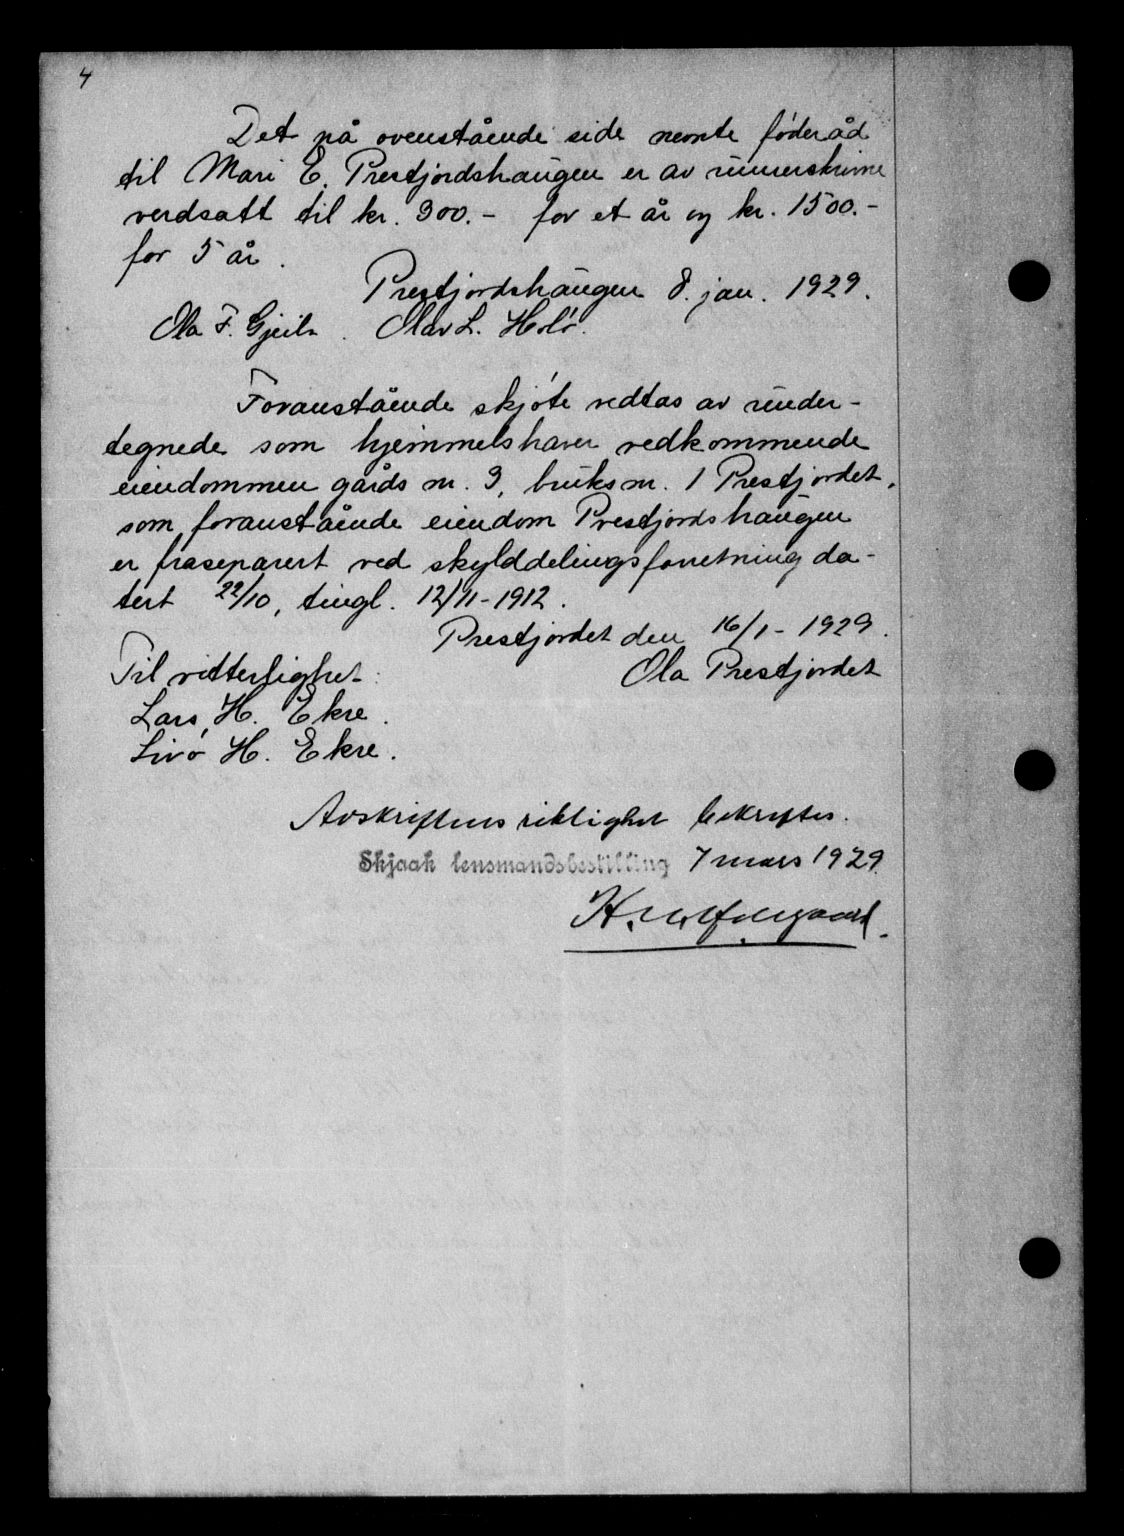 4
Det på ovenstående side nevnte føderåd
til Mari E. Prestjordshaugen er av
verdsatt til kr. 300.- for et år og kr. 1500.-
for 5 år.
Prestjordshaugen 8. jan. 1929.
Ola F. Gjeilo. Olav L. Holø.
Foranstående skjøte vedtas av under-
tegnede som hjemmelshaver vedkommende
eiendommen gårds nr. 3, bruksnr. 1 Prestjordet,
som foranstående eiendom Prestjordshaugen
er fraseparert ved skylddelingsforretning da-
tert 22/10, tingl. 12/11-1912.
Prestjordet den 16/1-1929.
Til vitterlighet: Ola Prestjordet
Lars H. Ekre.
H. Ekre.
Avskriftens riktighet bekreftes.
Skjaak lensmandsbestilling 7 mars 1929.